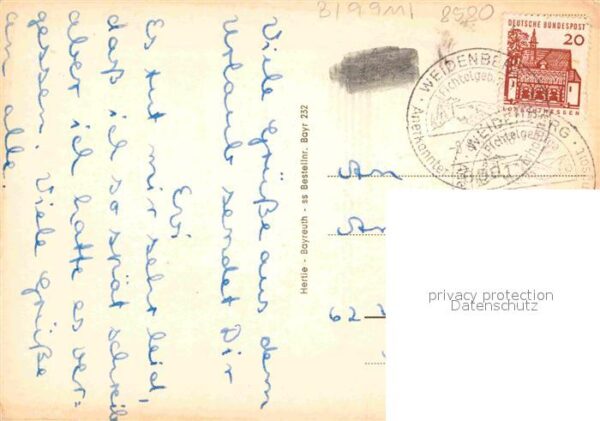 Viele Grüße aus dem
Urlaub sendet Dir
Evi
Es tut mir sehr leid,
daß ich so spät schreib
aber ich hatte es ver=
gessen. Viele Grüße
an alle.
Hertie - Bayreuth - ss Bestellnr. Bayr 232
8520
DEUTSCHE BUNDESPOST
20
LORSCH/HESSEN
WEIDENBERG
Fichtelgeb.
Anerkannter
WEIDENBERG
Fichtelgeb.
An
62
privacy protection
Datenschutz